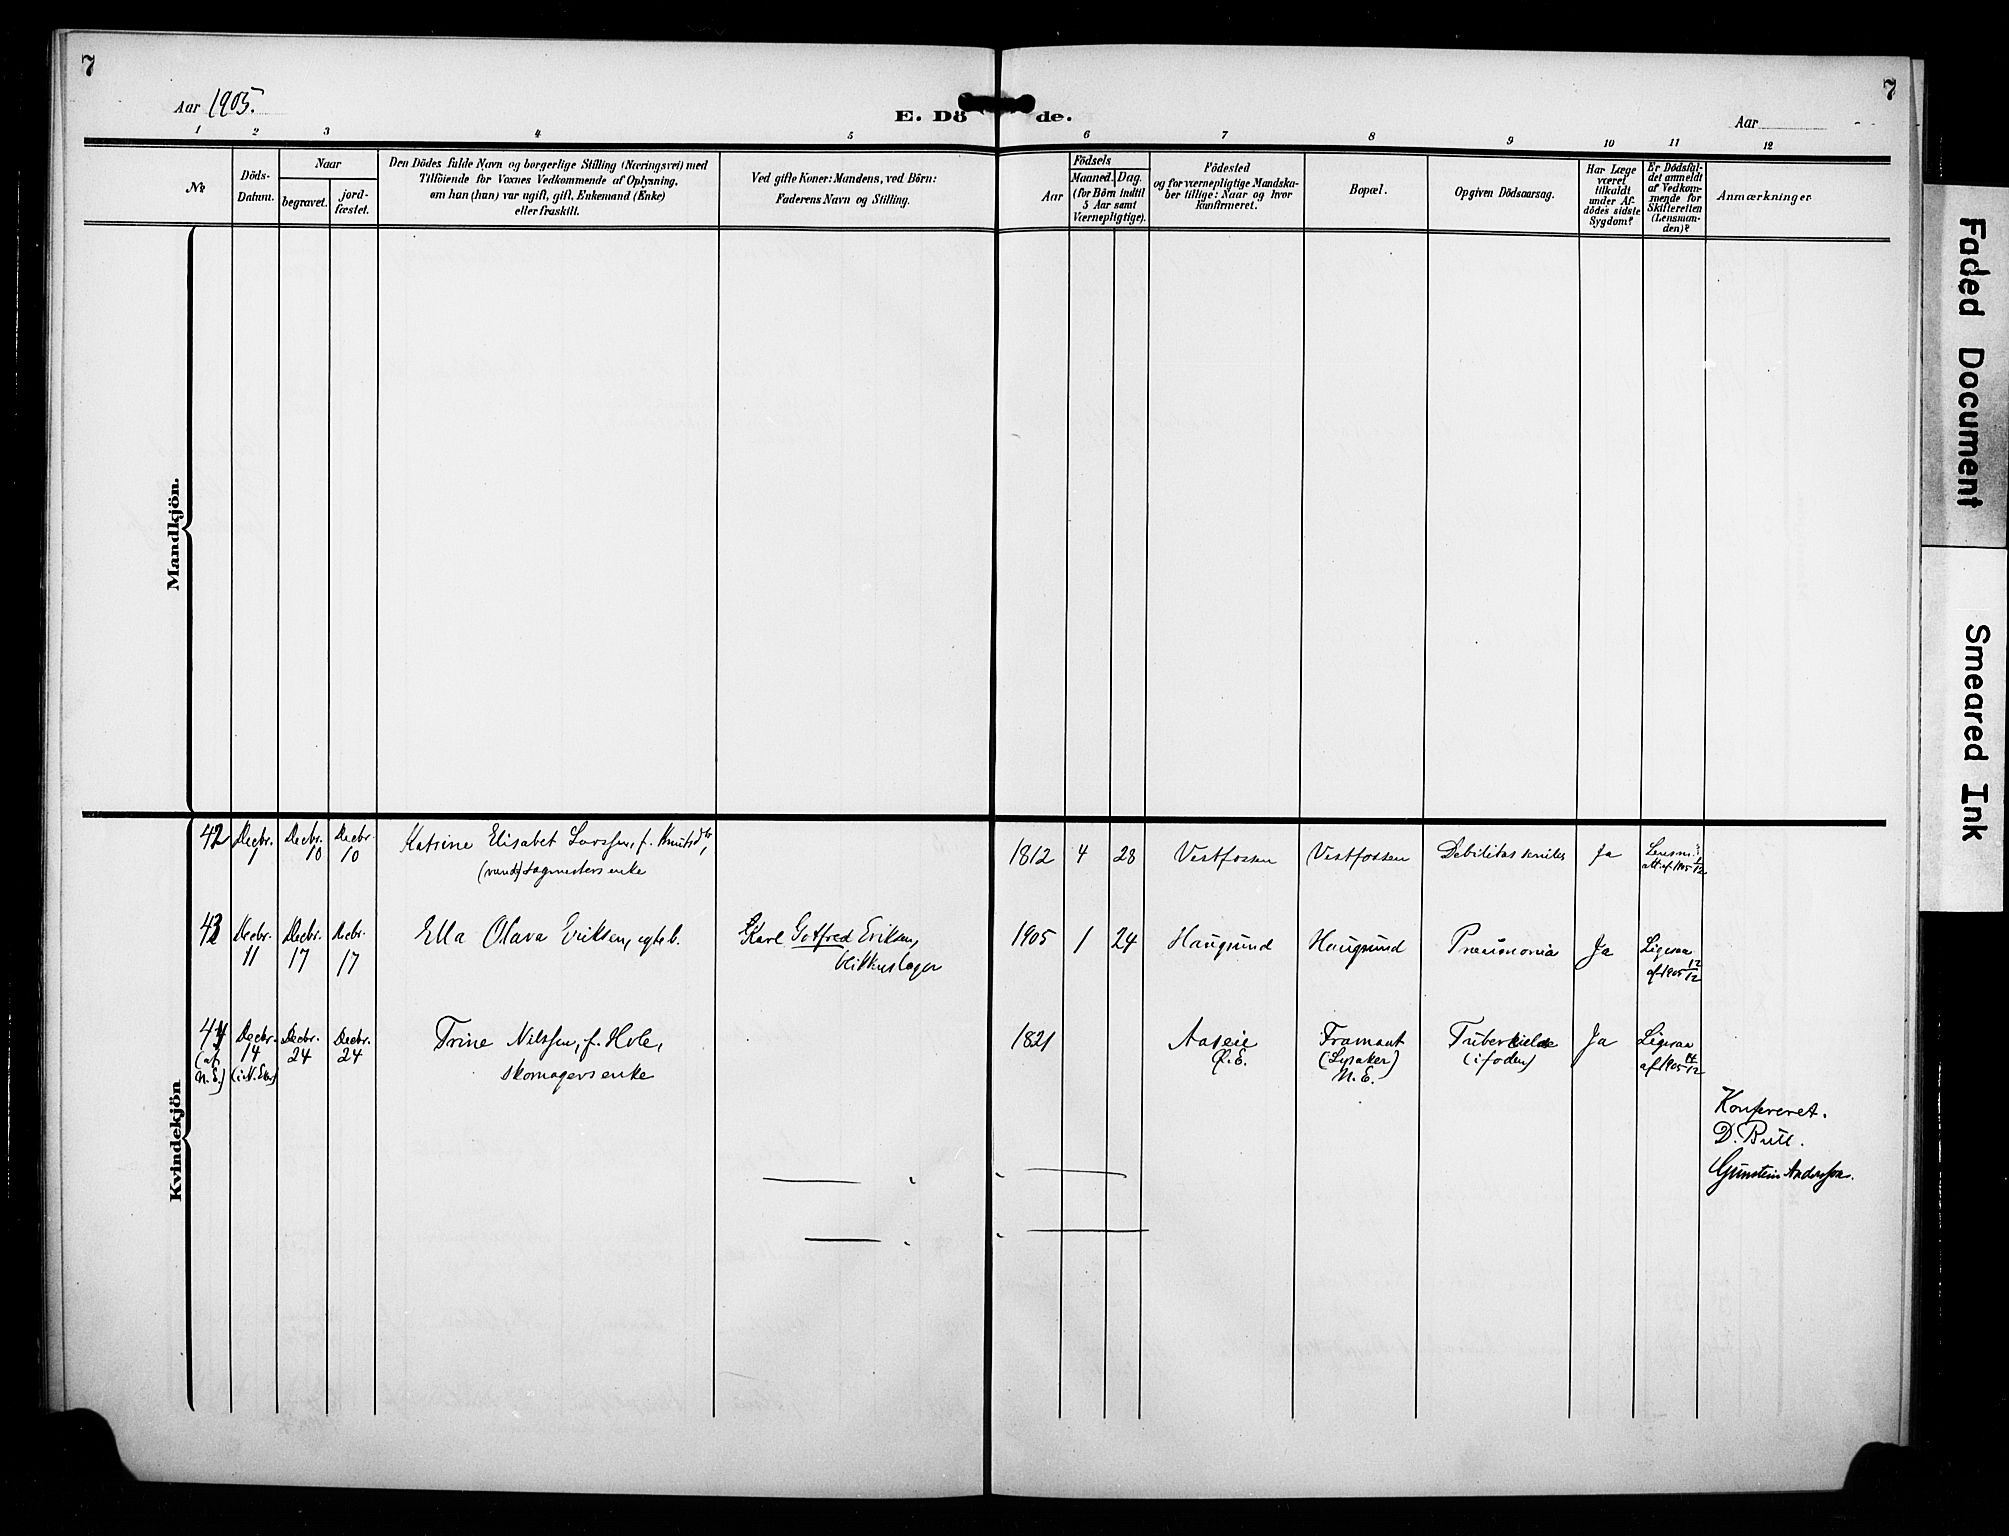 7
7
Aar 1905.
E. Dö de.
Aar
1 2 3 4 5 6 7 8 9 10 11 12
No
Döds-
Datum.
Naar
begravet.
jord-
fæstet.
Den Dödes fulde Navn og borgerlige Stilling (Næringsvei) med
Tilföiende for Voxnes Vedkommende af Oplysning,
om han (hun) var ugift, gift, Enkemand (Enke)
eller fraskilt.
Ved gifte Koner: Mandens, ved Börn:
Faderens Navn og Stilling.
Födsels
Aar
Maaned.
Dag.
(for Börn indtil
5 Aar samt
Værnepligtige).
Födested
og for værnepligtige Mandska-
ber tillige: Naar og hvor
konfirmeret.
Bopæl.
Opgiven Dödsaarsag.
Har Læge
været
tilkaldt
under Af-
dödes sidste
Sygdom?
Er Dödsfal-
det anmeldt
af Vedkom-
mende for
Skifteretten
(Lensman-
den)?
Anmærkninger
Mandkjön.
Kvindekjön
42 Decbr. 7 Decbr. 10 Decbr. 10
Katrine Elisabet Larssen, f. Knutsdtr,
sagmesters enke
1812 4 28 Vestfossen Vestfossen Debilitas senilis Ja Lensm.
att. af 1905
43 Decbr. 11 Decbr. 17 Decbr. 17
Ella Olava Eriksen, egteb.
Karl Gotfred Eriksen,
blikkenslager
1905 1 24 Haugsund Haugsund Pneumonia Ja Ligesaa
af 1905 12/12
44 Decbr. 14 Decbr. 24 Decbr. 24
(af
N.E.)
Trine Nilssen, f. Hole,
skomagers enke
1821 Aaseie
Ø.E.
Framout
(Lysaker)
N.E.
Tuberkulose
(i foden)
Ja Ligesaa
af 1905 14/12
Konfereret.
D. Bull.
Gunstein Anderssen.
Faded Document
Smeared Ink